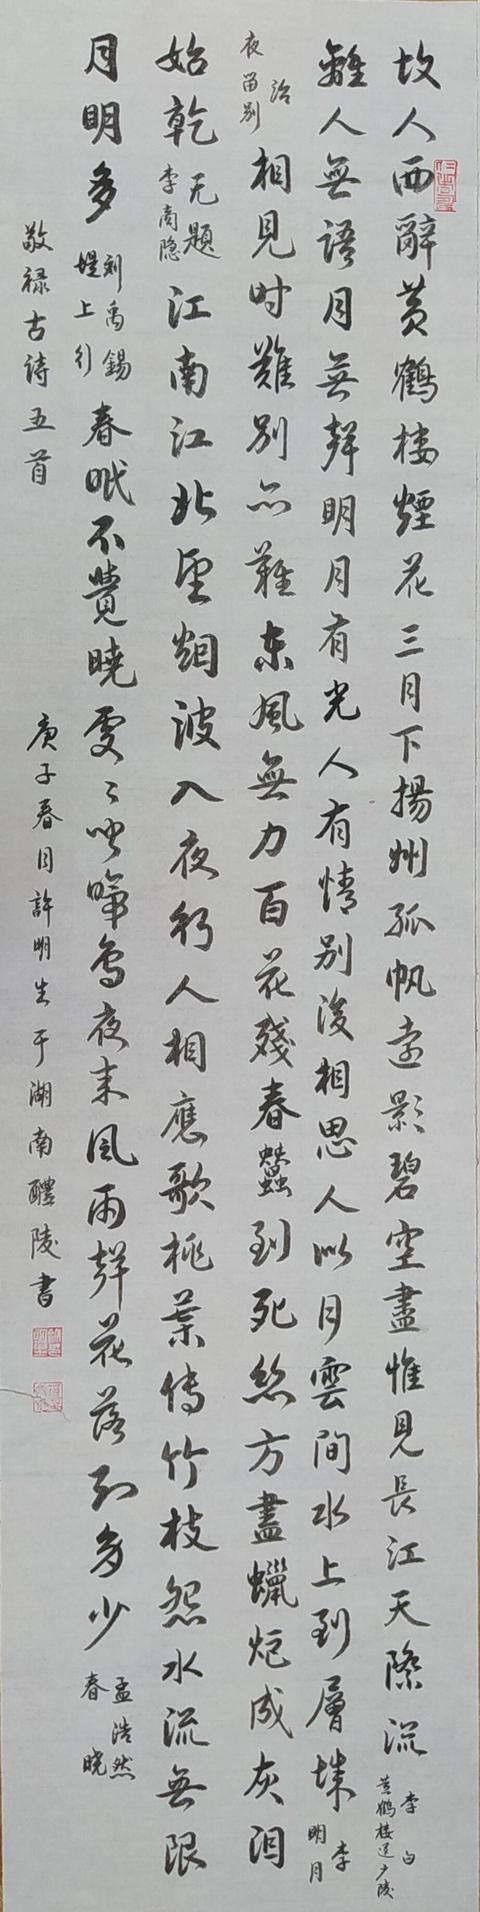 故人西辭黃鶴樓煙花三月下揚州孤帆遠影碧空盡惟見長江天際流 李白 黃鶴樓送廣陵
離人無語月無聲明月有光人有情別後相思人似月雲間水上到層城 李 明月
夜留別 冶 相見時難別亦難东風無力百花殘春蠶到死絲方盡蠟炬成灰泪
始乾 无題 李商隐 江南江北望烟波入夜行人相應歌桃葉传竹枝怨水流無限
月明多 刘禹錫 堤上行 春眠不覺曉处々闻啼鸟夜来风雨聲花落知多少 孟浩然 春晓
敬録古诗五首
庚子春月許明生于湖南醴陵書